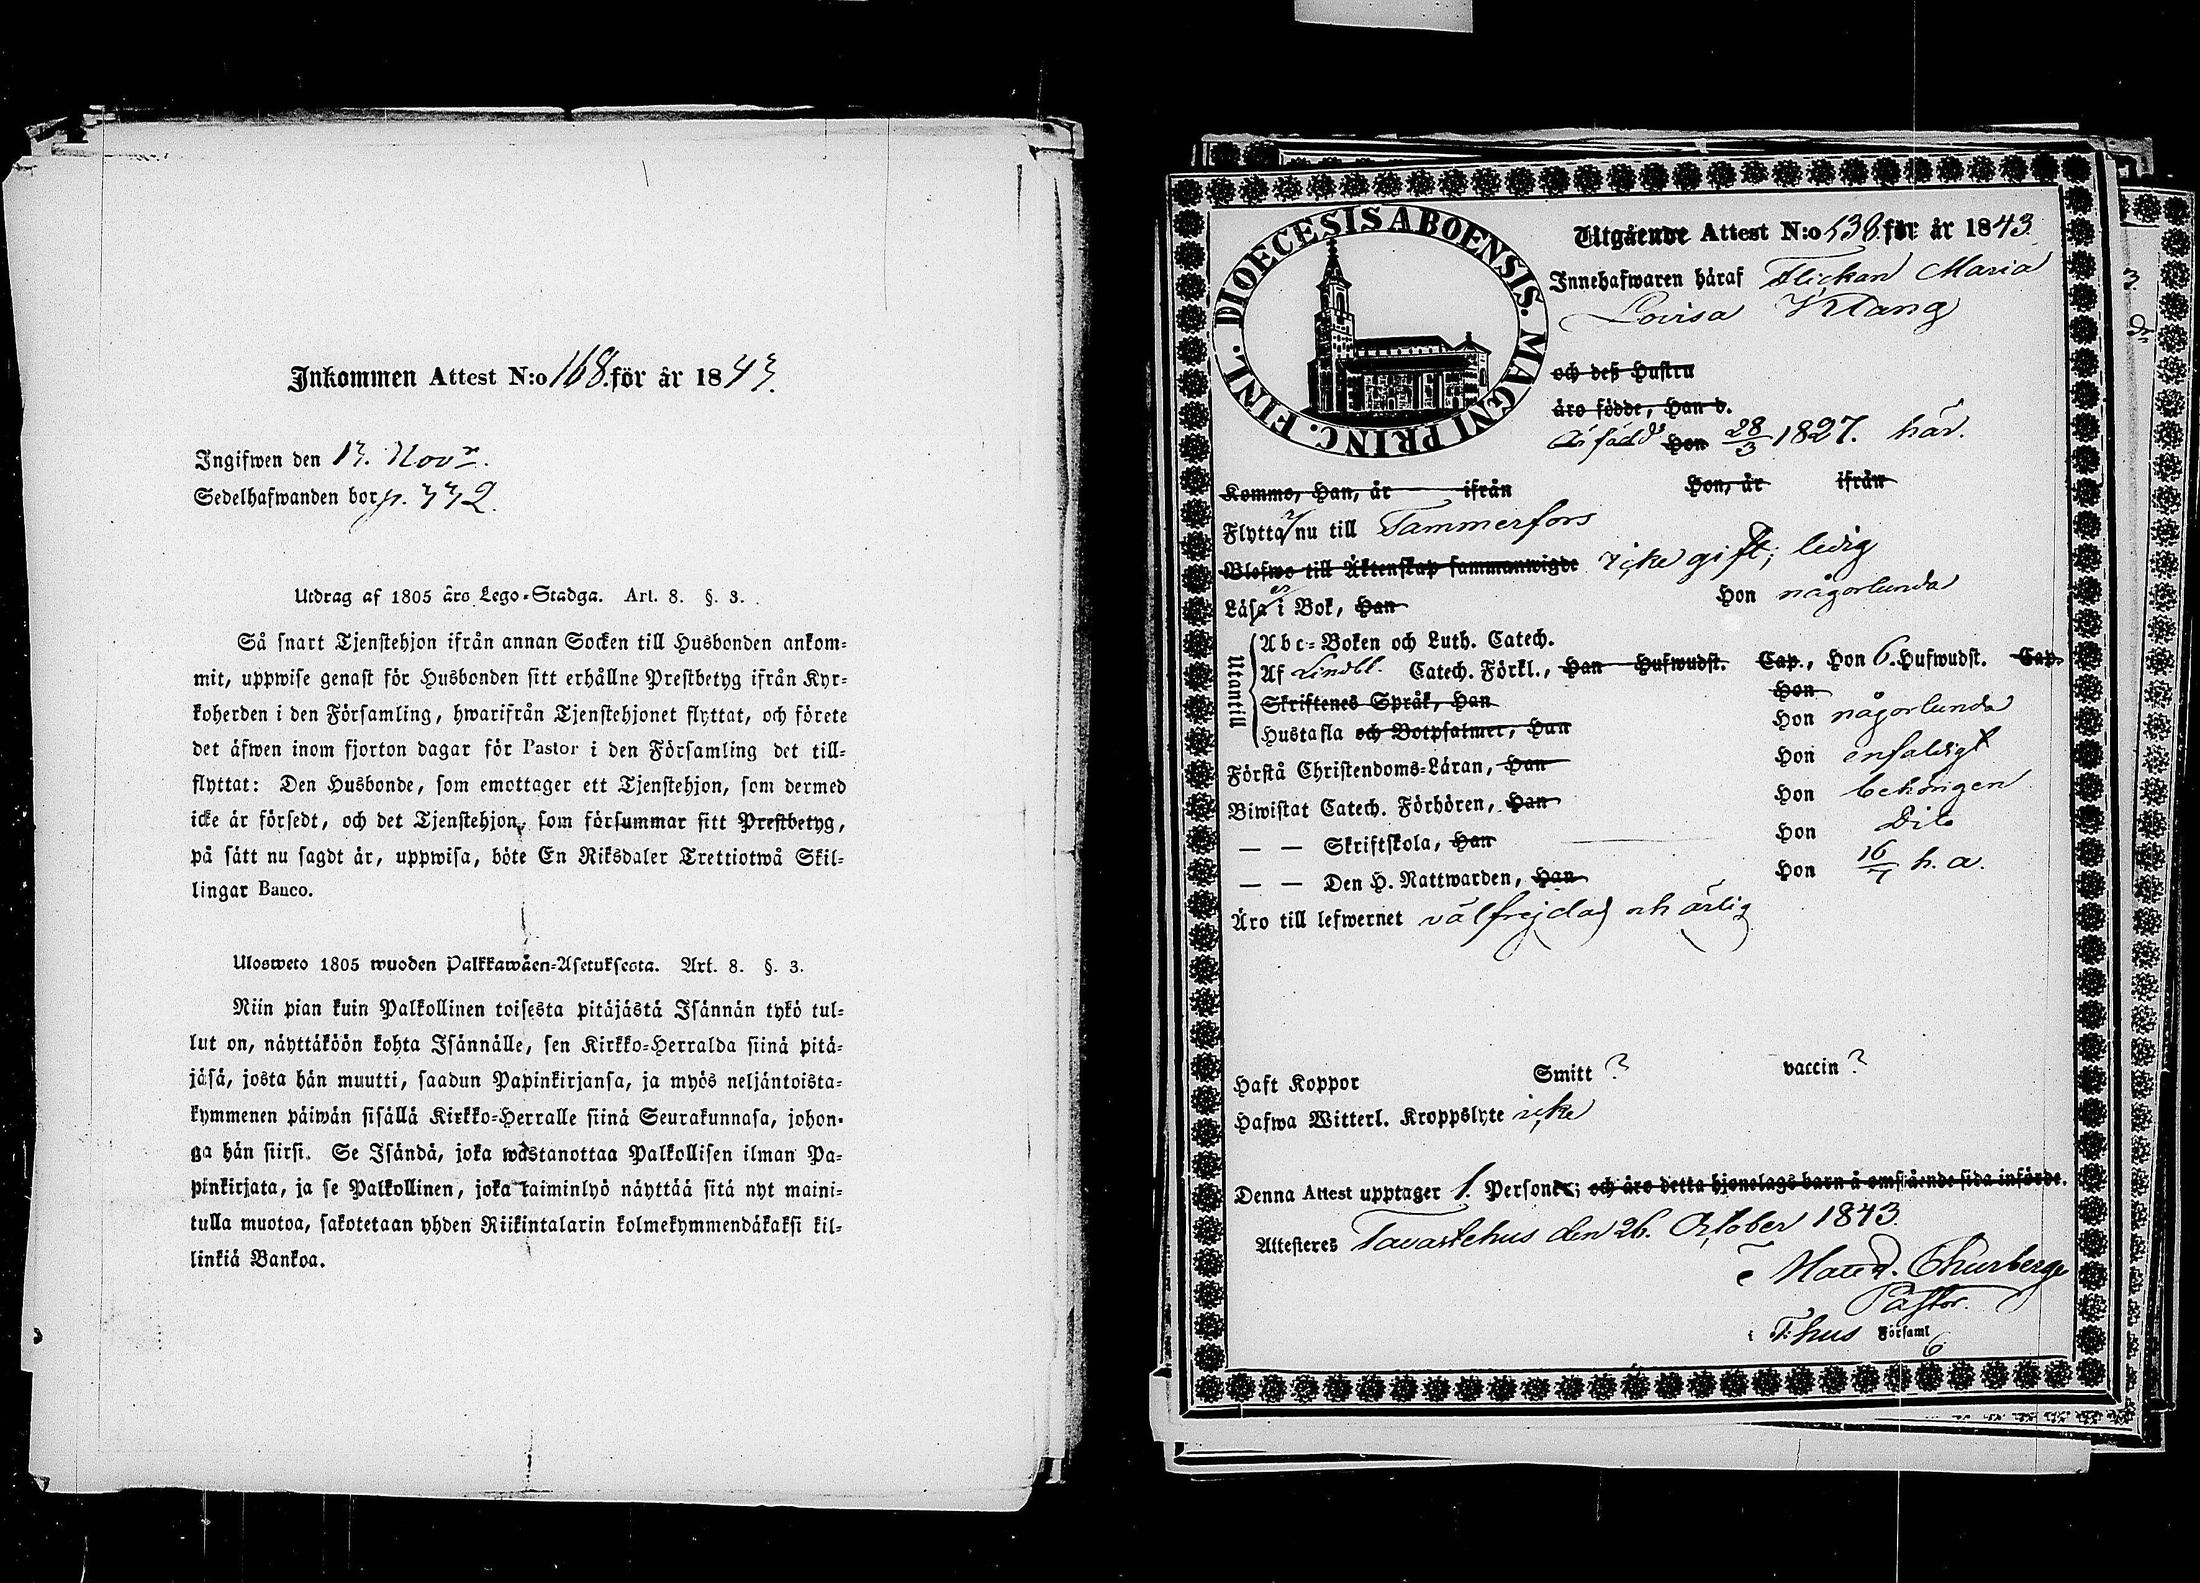 Inkommen Attest N:o 168. för år 1843.
Ingifwen den 13. Novr.
Sedelhafwanden bor p. 332.
Utdrag af 1805 års Lego-Stadga. Art. 8. §. 3.
Så snart Tjenstehjon ifrån annan Socken till Husbonden ankom-
mit, uppwise genast för Husbonden sitt erhållne Prestbetyg ifrån Kyr-
koherden i den Församling, hwarifrån Tjenstehjonet flyttat, och förete
det äfwen inom fjorton dagar för Pastor i den Församling det till-
flyttat: Den Husbonde, som emottager ett Tjenstehjon, som dermed
icke är försedt, och det Tjenstehjon, som försummar sitt Prestbetyg,
på sätt nu sagdt är, uppwisa, böte En Riksdaler Trettiotwå Skil-
lingar Banco.
Ulosweto 1805 wuoden Palkkawäen-Asetuksesta. Art. 8. §. 3.
Niin pian kuin Palkollinen toisesta pitäjästä Isännän tykö tul-
lut on, näyttäköön kohta Isännälle, sen Kirkko-Herralda siinä pitä-
jäsä, josta hän muutti, saadun Papinkirjansa, ja myös neljäntoista-
kymmenen päiwän sisällä Kirkko-Herralle siinä Seurakunnasa, johon-
ga hän siirsi. Se Isändä, joka wastanottaa Palkollisen ilman Pa-
pinkirjata, ja se Palkollinen, joka laiminlyö näyttää sitä nyt maini-
tulla muotoa, sakotetaan yhden Riikintalarin kolmekymmendäkaksi kil-
linkiä Bankoa.
DIOECESIS ABOENSIS. MAGNI PRINC. FINL.
Utgående Attest N:o 138. för år 1843.
Innehafwaren häraf Flickan Maria
Lovisa Klang
och deß Hustru
äro födde, Han d.
är född Hon 28/3 1827. här.
Komme, Han, år ifrån Hon, år ifrån
Flytta r nu till Tammerfors
Blefwo till Äktenskap sammanwigde icke gift; ledig
Läsa er i Bok, Han Hon någorlunda
Utantill
Abc-Boken och Luth. Catech.
Af Lindbl. Catech. Förkl., Han Hufwudst. Cap., Hon 6. Hufwudst. Cap.
Skriftenes Språk, Han Hon
Hustafla och Botpsalmer, Han Hon någorlunda
Förstå Christendoms-Läran, Han Hon enfaldigt
Biwistat Catech. Förhören, Han Hon behörigen
— — Skriftskola, Han Hon Dito
— — Den H. Nattwarden, Han Hon 16/7 h. a.
Äro till lefwernet välfrejdad och ärlig
Haft Koppor Smitt ? vaccin ?
Hafwa Witterl. Kroppslyte icke
Denna Attest upptager 1. Person; och äro detta hjonelags barn å omstående sida införde.
Attesteres Tavastehus den 26. October 1843.
Pastor.
i T:hus Församl
6